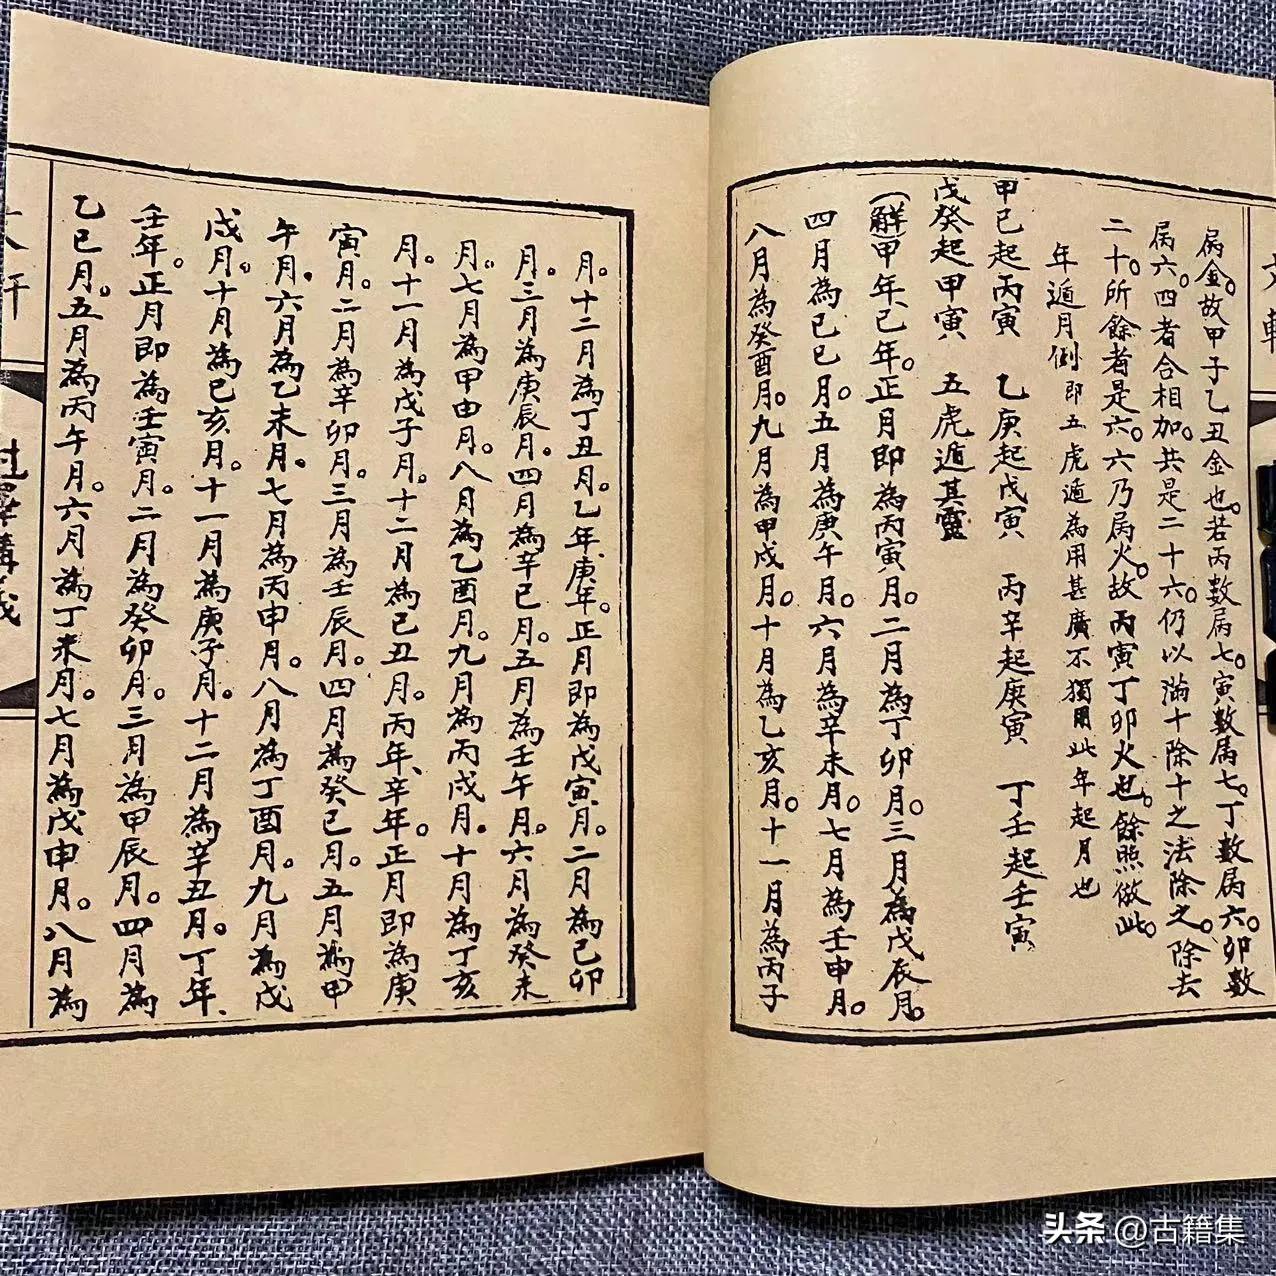 屬金。故甲子乙丑金也。若丙數屬七。寅數屬七。丁數屬六。卯數
屬六。四者合相加。共是二十六。仍以滿十除十之法除之。除去
二十。所餘者是六。六乃屬火。故丙寅丁卯火也。餘照倣此。
年遁月例 即五虎遁為用甚廣不獨用此年起月也
甲己起丙寅 乙庚起戊寅 丙辛起庚寅 丁壬起壬寅
戊癸起甲寅 五虎遁其靈
(解)甲年、己年。正月即為丙寅月。二月為丁卯月。三月為戊辰月。
四月為己巳月。五月為庚午月。六月為辛未月。七月為壬申月。
八月為癸酉月。九月為甲戌月。十月為乙亥月。十一月為丙子
月。十二月為丁丑月。乙年、庚年。正月即為戊寅月。二月為己卯
月。三月為庚辰月。四月為辛巳月。五月為壬午月。六月為癸未
月。七月為甲申月。八月為乙酉月。九月為丙戌月。十月為丁亥
月。十一月為戊子月。十二月為己丑月。丙年、辛年。正月即為庚
寅月。二月為辛卯月。三月為壬辰月。四月為癸巳月。五月為甲
午月。六月為乙未月。七月為丙申月。八月為丁酉月。九月為戊
戌月。十月為己亥月。十一月為庚子月。十二月為辛丑月。丁年、
壬年。正月即為壬寅月。二月為癸卯月。三月為甲辰月。四月為
乙巳月。五月為丙午月。六月為丁未月。七月為戊申月。八月為
頭条 @古籍集